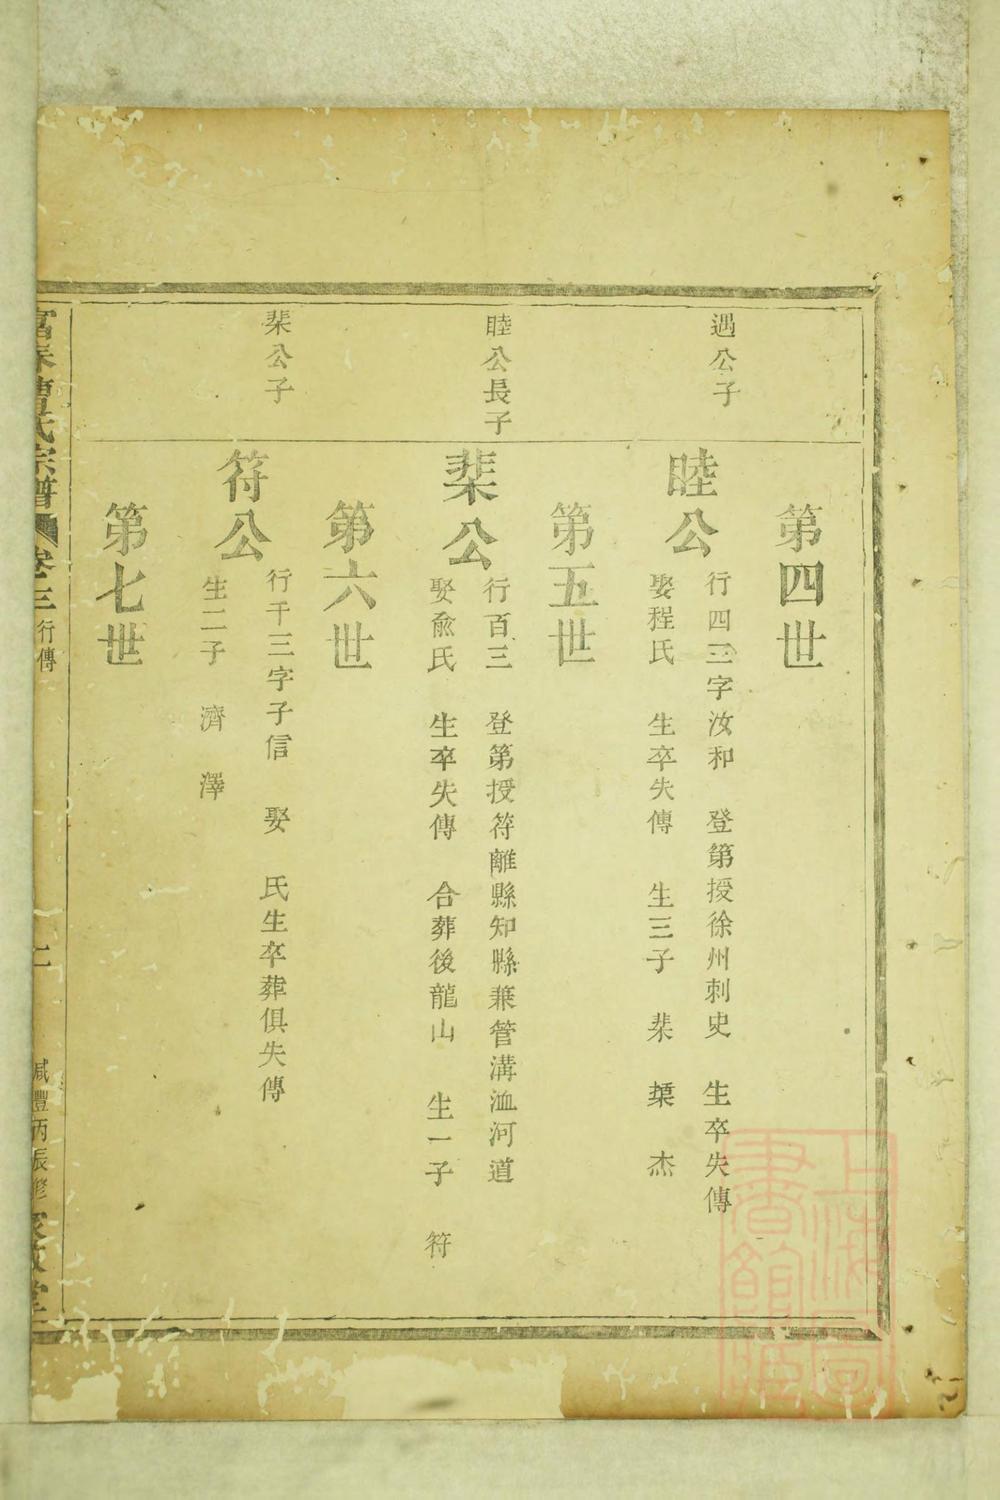 第四世
遇公子
睦公
行四三字汝和 登第授徐州刺史 生卒失傳
娶程氏 生卒失傳 生三子 棐 椉 杰
第五世
睦公長子
棐公
行百三 登第授符離縣知縣兼管溝洫河道
娶俞氏 生卒失傳 合葬後龍山 生一子 符
第六世
棐公子
符公
行千三字子信 娶 氏生卒葬俱失傳
生二子 濟 澤
第七世
富春 氏宗譜 卷三 行傳 二 咸豐丙辰修
上海圖書館藏